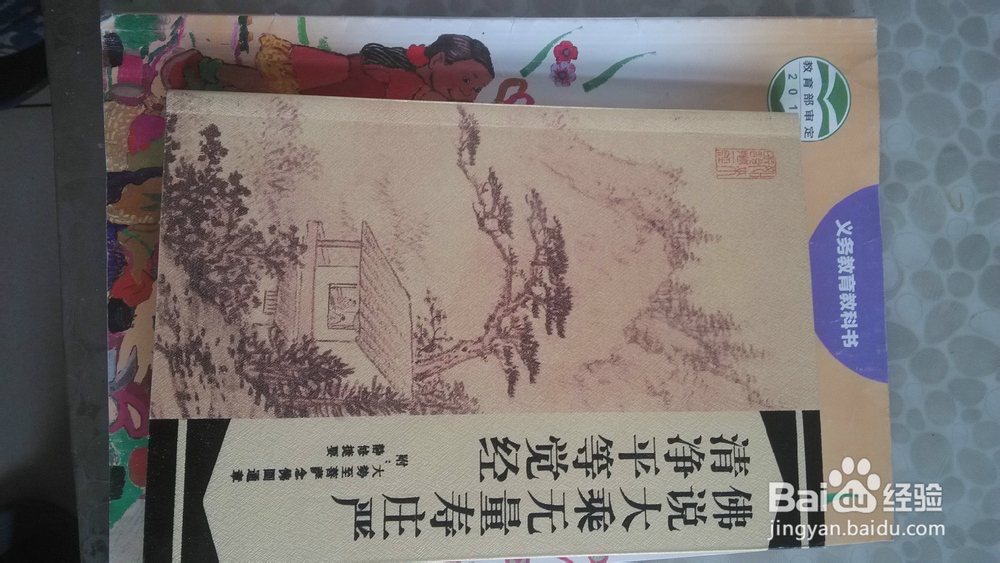 教育部审定
201
义务教育教科书
佛说大乘无量寿庄严
清净平等觉经
附·大勢至菩薩念佛圓通章
靜修捷要
Bai度经验
jingyan.baidu.com